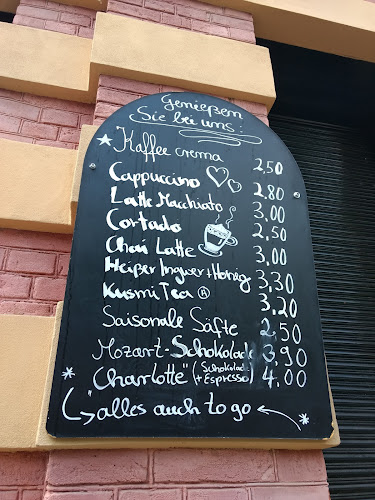 Genießen
Sie bei uns:
Kaffee crema 2,50
Cappuccino 2,80
Latte Macchiato 3,00
Cortado 2,50
Chai Latte 3,00
Heißer Ingwer + Honig 3,30
Kusmi Tea ® 3,20
Saisonale Säfte 2,50
Mozart-Schokolade 3,90
"Charlotte" (Schokolade + Espresso) 4,00
alles auch to go